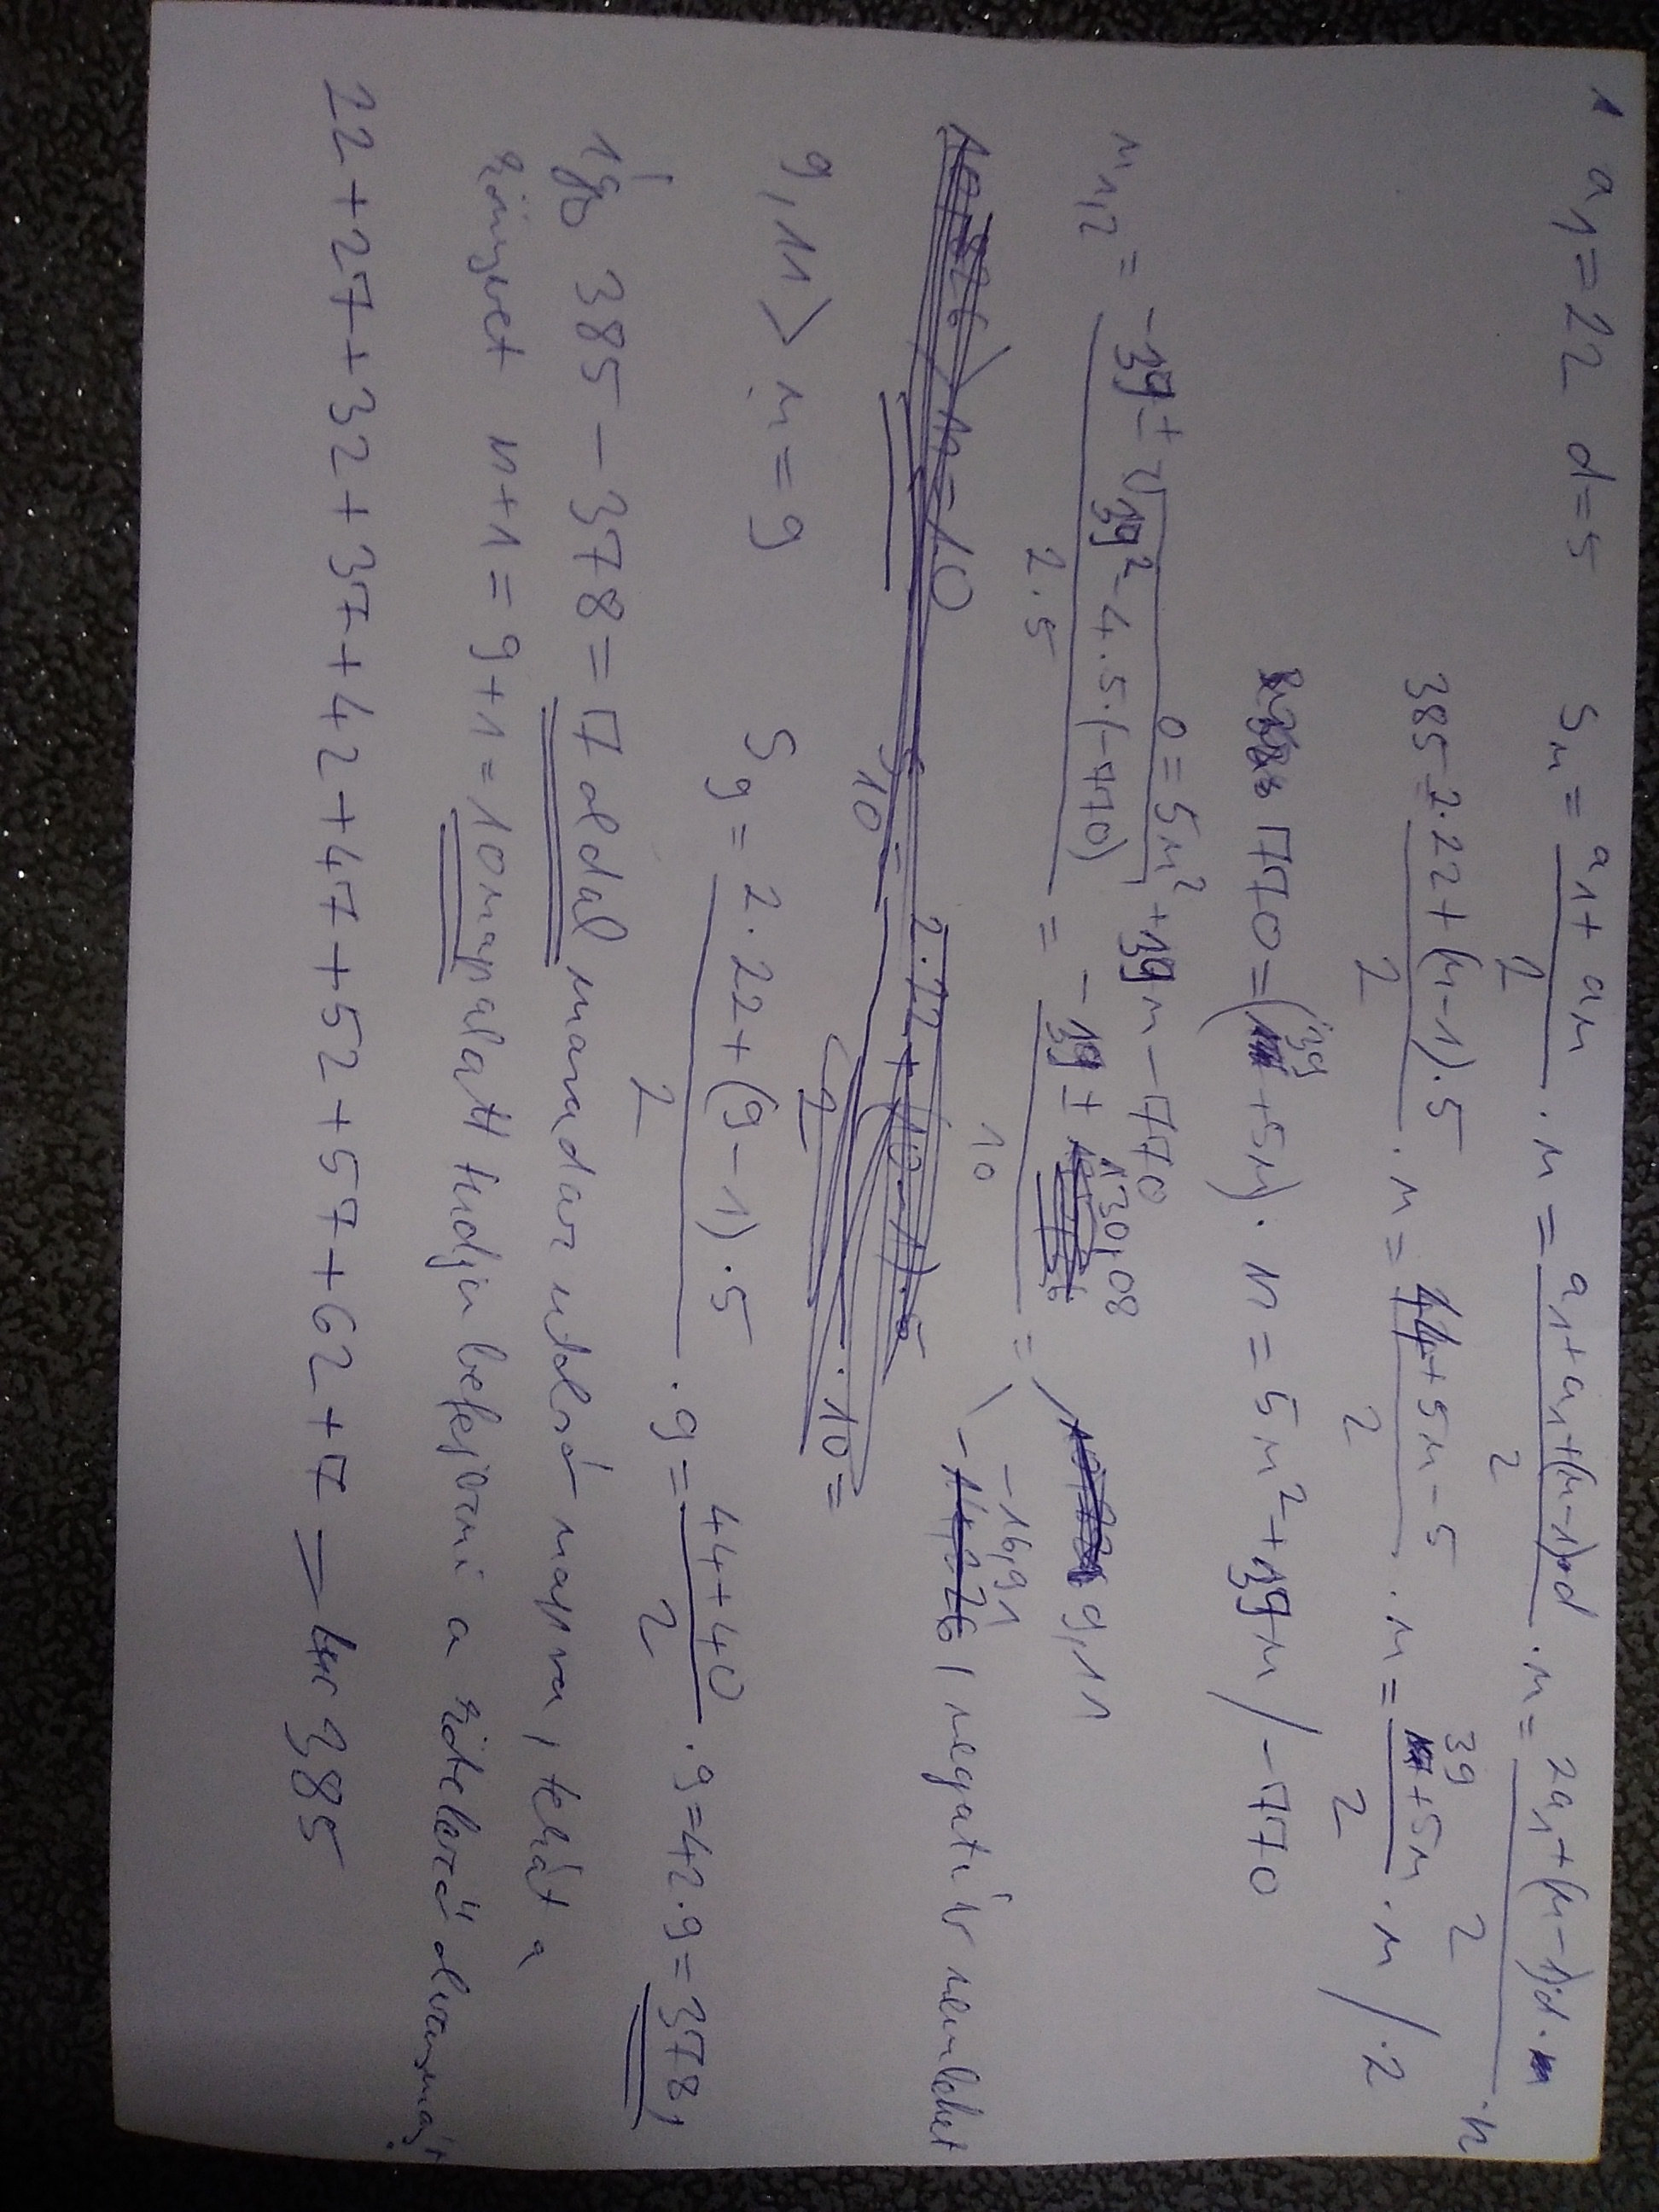 1 a₁=22 d=5 Sₙ = (a₁+aₙ)/2 · n = (a₁+a₁+(n-1)·d)/2 · n = (2a₁+(n-1)d)/2 · n
385 = (2·22+(n-1)·5)/2 · n = (44+5n-5)/2 · n = (39+5n)/2 · n /·2
770 = (39+5n)·n = 5n²+39n /-770
0 = 5n²+39n-770
n₁,₂ = (-39±√(39²-4·5·(-770)))/(2·5) = (-39±130,08)/10 = 9,11
-16,91, negatív nem lehet
9,11> n=9 S₉ = (2·22+(9-1)·5)/2 · 9 = (44+40)/2 · 9 = 42·9 = 378,
Így 385-378=7 oldal marad az utolsó napra, tehát a
könyvet n+1=9+1=10 nap alatt tudja befejezni a kötelező olvasmányt
22+27+32+37+42+47+52+57+62+7 = 385